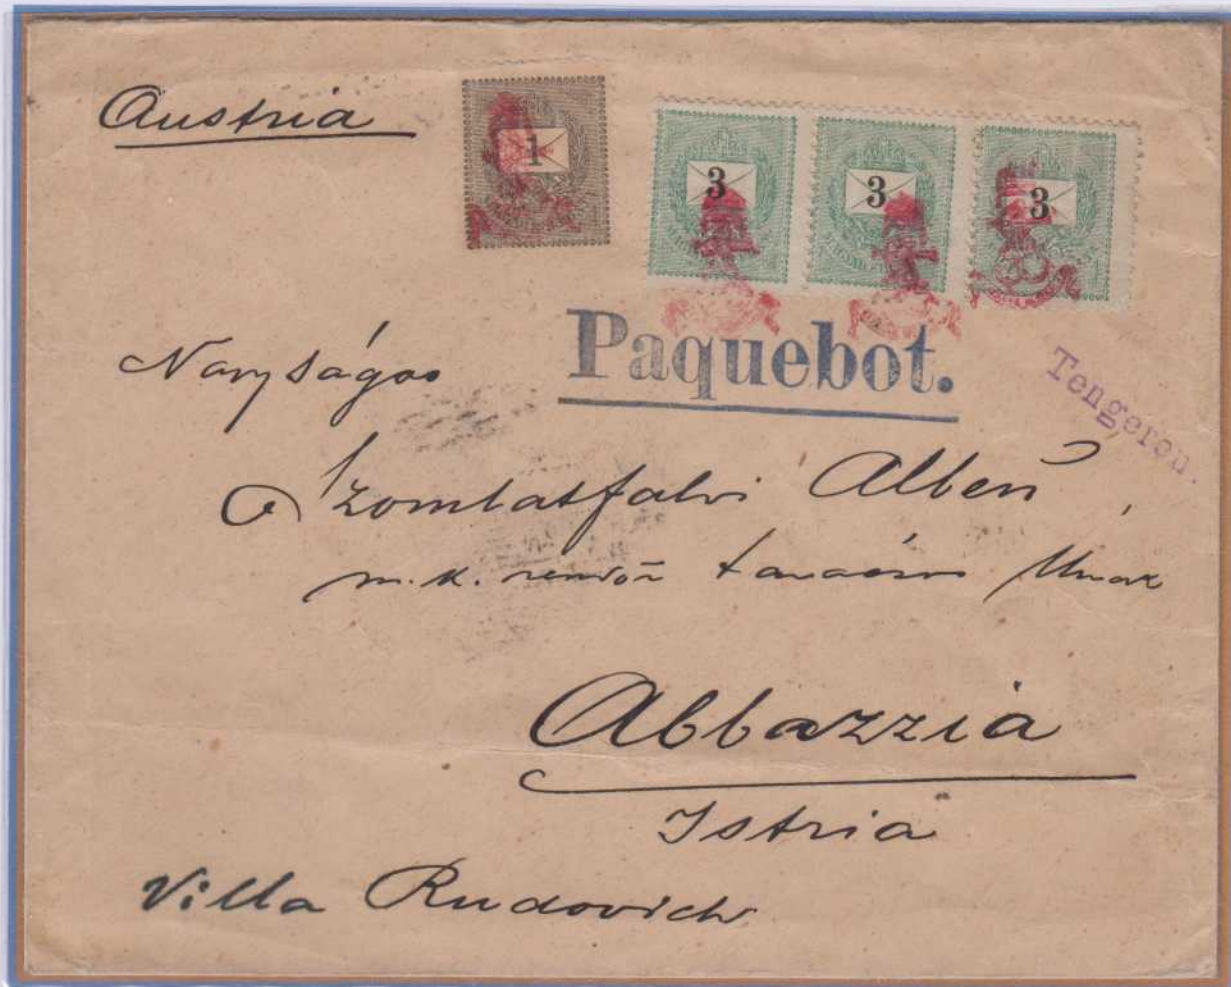 Austria
1
3 3 3
Paquebot.
Tengeren.
Nagyságos
Szombatfalvi Albert
m. k. rendőr tanácsos Urnak
Abbazzia
Istria
Villa Rudovich